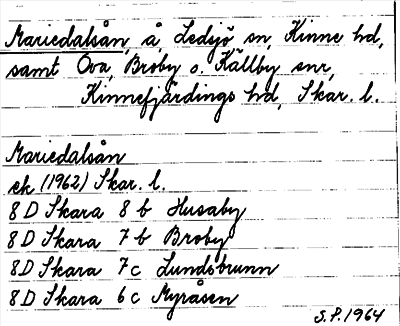 Mariedalsån, å, Ledsjö sn, Kinne hd,
samt Ova, Broby o. Källby snr,
Kinnefjärdings hd, Skar. l.
Mariedalsån
ek (1962) Skar. l.
8 D Skara 8 b Husaby
8 D Skara 7 b Broby
8 D Skara 7 c Lundsbrunn
8 D Skara 6 c Myråsen
S.P. 1964